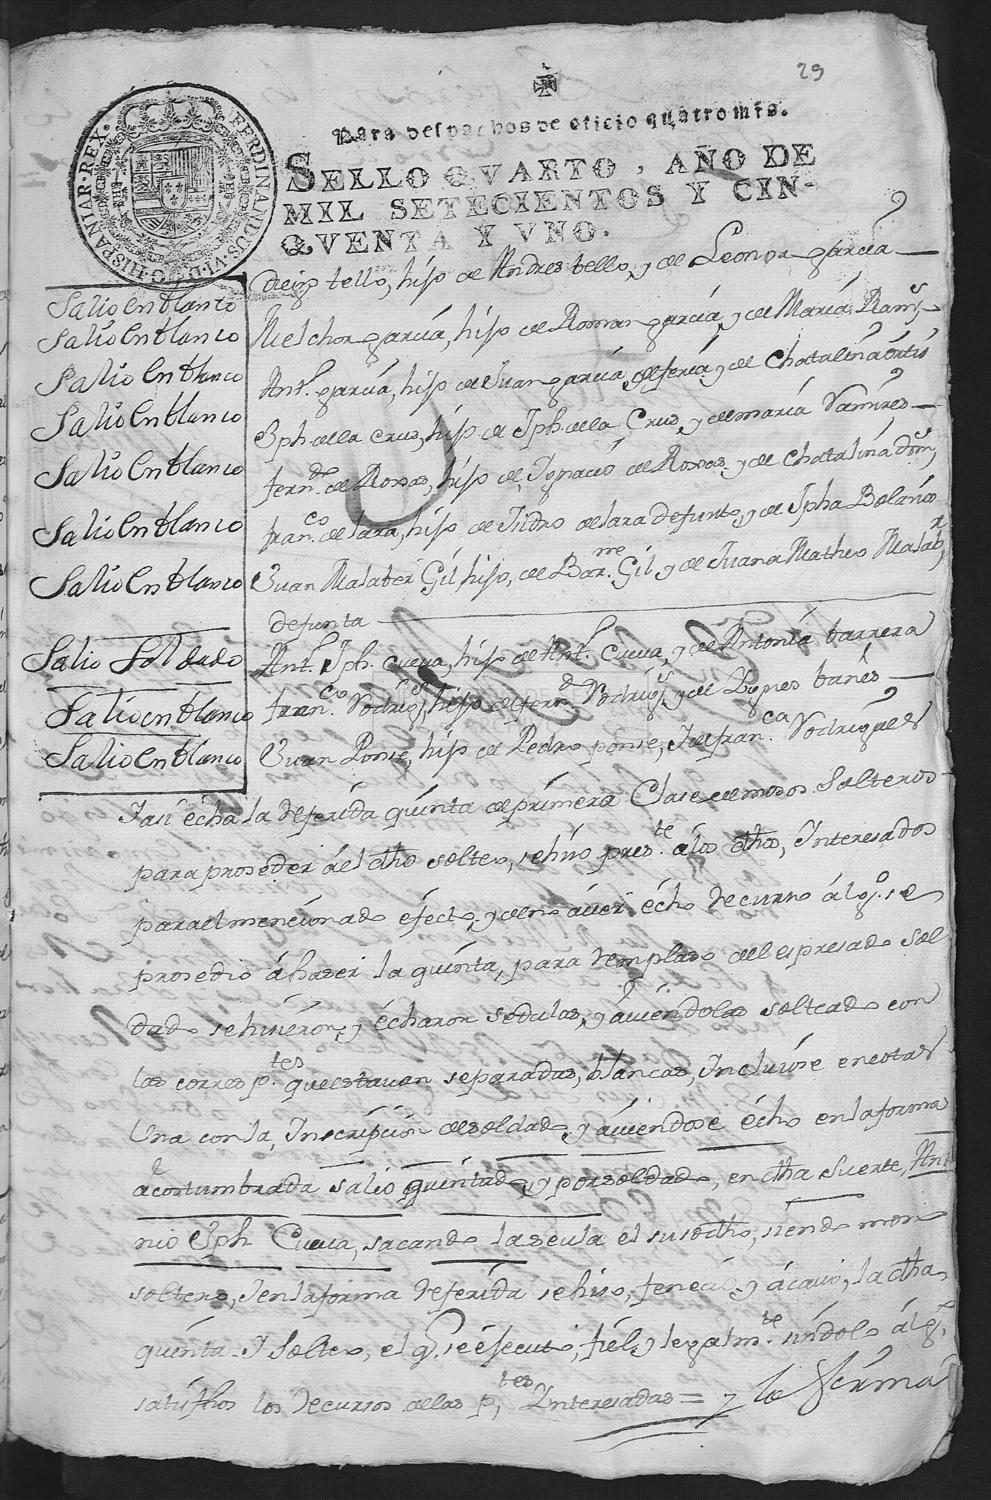 29
Para despachos de oficio quatro mrs.
SELLO QVARTO, AÑO DE
MIL SETECIENTOS Y CIN-
QVENTA Y VNO.
FERDINANDUS·VI·D·G·HISPANIAR·REX·
Diego tello, hijo de Andres tello, y de Leonor garcia
Salio En blanco
Melchor garcia, hijo de Roman garcia, y de Maria Rams
Salio En blanco
Antº. garcia, hijo de Juan garcia, de feria y de Chatalina ortis
Salio En blanco
Jph. de la Crus, hijo de Jph. de la Crus, y de maria Ramires
Salio En blanco
ferndo. de Roxas, hijo de Ignacio de Roxas, y de Chatalina doms
Salio En blanco
franco. de lara, hijo de Isidro de lara defunto, y de Jpha Bolaños
Salio En blanco
Juan Malaber Gil hijo, de Barme. Gil, y de Juana Matheo Malabr
Salio En blanco
defunta
Antº. Jph. Cueva, hijo de Antº. Cueva, y de Antonia barrera
Salio Soldado
franco. Rodrigs, hijo de fernd Rodrigs, y de Ygnes banes
Salio en blanco
Juan Ponse, hijo de Pedro ponse, I de franca. Rodrigues
Salio En blanco
I asi écha la Referida quinta de primera Clase de mosos Solteros
para proseder ál dho solteo, se hiso preste. á los dhos, Interesados
para el mencionado éfecto, y de no áver écho Recurso álgo. se
prosedio á haser la quinta, para Remplaso del espresado Sol
dado se hisieron, y écharon sedulas, y áviendolas solteado con
las correspte.s que estavan separadas, blancas, Incluiose en estas
Una con la, Inscripcion de soldado, y áviendose écho en la forma
acostumbrada salio quintado, y por soldado, en dha suerte, Anto
nio Jph Cueva, sacando la sedula el susodho, siendo moso
soltero, I en la forma Referida se hiso, feneció, y ácavó, la dha
quinta I Solteo, el q. se éjecutó, fiel, y legalmte.
los Recursos de las ptes. Interesadas = y lo firma